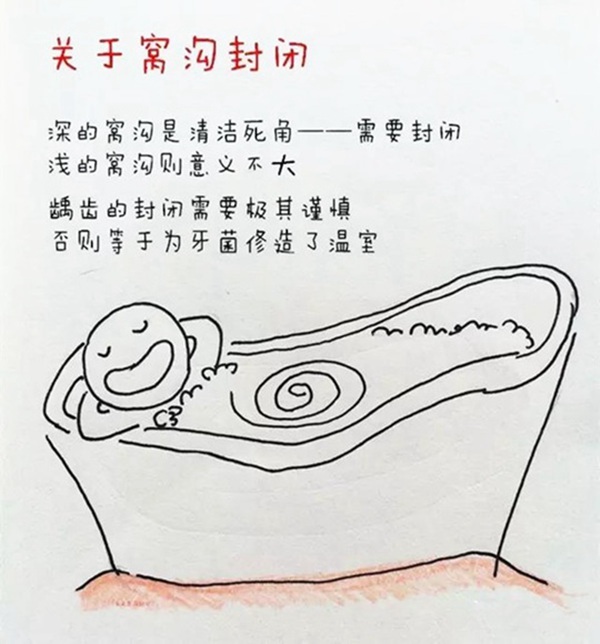 关于窝沟封闭
深的窝沟是清洁死角——需要封闭
浅的窝沟则意义不大
龋齿的封闭需要极其谨慎
否则等于为牙菌修造了温室